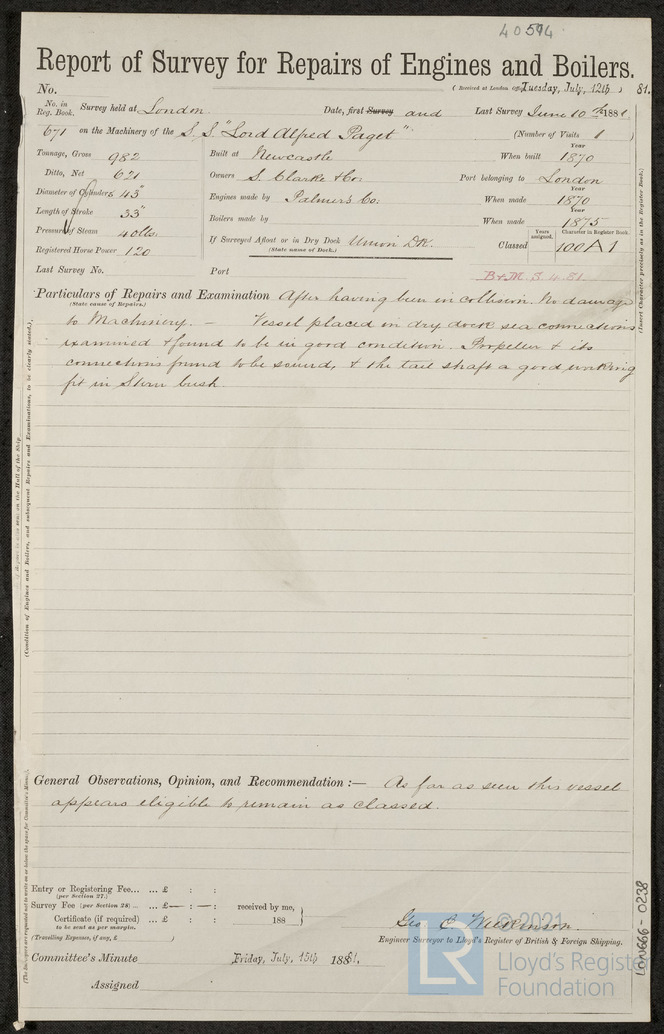 40594
Report of Survey for Repairs of Engines and Boilers.
No. (Received at London Office Tuesday, July, 12th, 81.
No. in Reg. Book. Survey held at London Date, first Survey and Last Survey June 10th 1881.
671 on the Machinery of the S.S. "Lord Alfred Paget" (Number of Visits 1 )
Tonnage, Gross 982 Built at Newcastle When built Year 1870
Ditto, Net 621 Owners S. Clarke & Co: Port belonging to London
Diameter of Cylinders 45" Engines made by Palmers Co: When made Year 1870
Length of Stroke 33" Boilers made by When made Year 1875
Pressure of Steam 40lbs
Registered Horse Power 120 If Surveyed Afloat or in Dry Dock Union DK. Classed Years assigned. Character in Register Book. 100A1
(State name of Dock.)
Last Survey No. Port B&M 3.4.81
Particulars of Repairs and Examination After having been in Collision. No damage
(State cause of Repairs.)
to Machinery. — Vessel placed in dry dock sea connections
examined & found to be in good condition. Propeller & its
connections found to be sound, & the tail shaft a good working
fit in Stern bush
General Observations, Opinion, and Recommendation :— As far as seen this vessel
appears eligible to remain as classed.
Entry or Registering Fee... ... £ : :
(per Section 27.)
Survey Fee (per Section 28) ... ... £ — : — : received by me,
Certificate (if required) ... £ : : 188
to be sent as per margin.
(Travelling Expenses, if any, £ )
Geo. C. Wilkinson.
Engineer Surveyor to Lloyd's Register of British & Foreign Shipping.
Committee's Minute Friday, July, 15th 1881.
Assigned
(Insert Character precisely as in the Register Book.)
(Condition of Engines and Boilers, and subsequent Repairs and Examinations, to be clearly stated.)
(The Surveyors are requested not to write on or below the space for Committee's Minute.)
LON666-0238
© 2021
LR
Lloyd's Register
Foundation